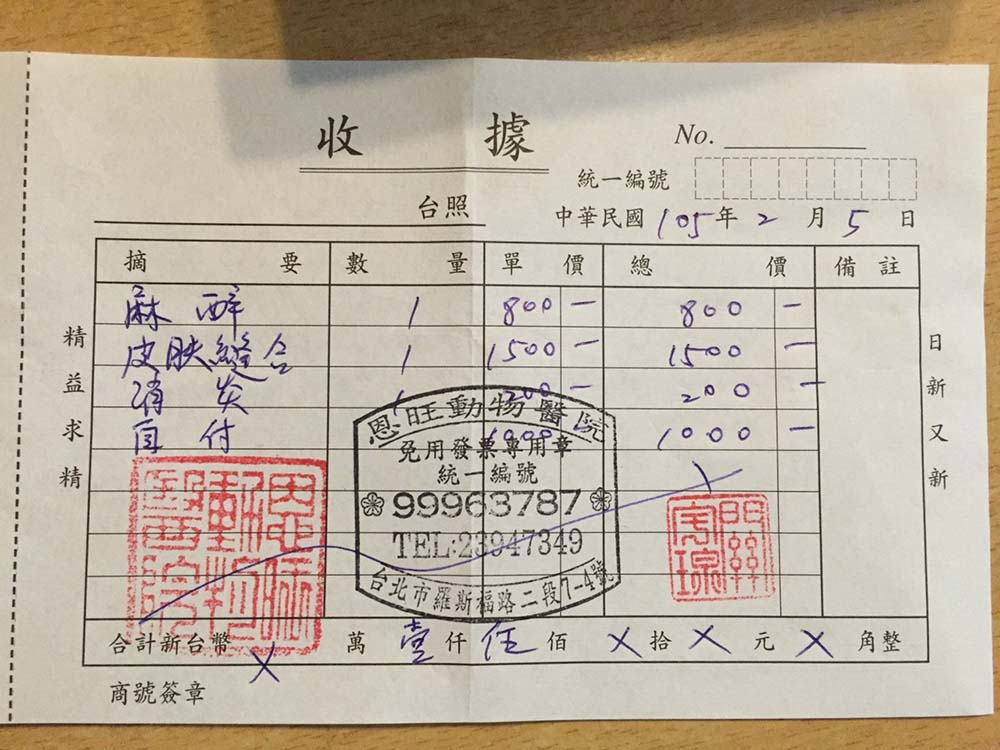 收 據
No.
統一編號
台照
中華民國105年2月5日
摘 要 數 量 單 價 總 價 備 註
麻醉 1 800 － 800 －
皮膚縫合 1 1500 － 1500 －
消炎 1 200 － 200 －
自付 1000 1000 －
精益求精
日新又新
恩旺動物醫院
免用發票專用章
統一編號
99963787
TEL:23947349
台北市羅斯福路二段7-4號
合計新台幣 X 萬 壹 仟 伍 佰 X 拾 X 元 X 角整
商號簽章